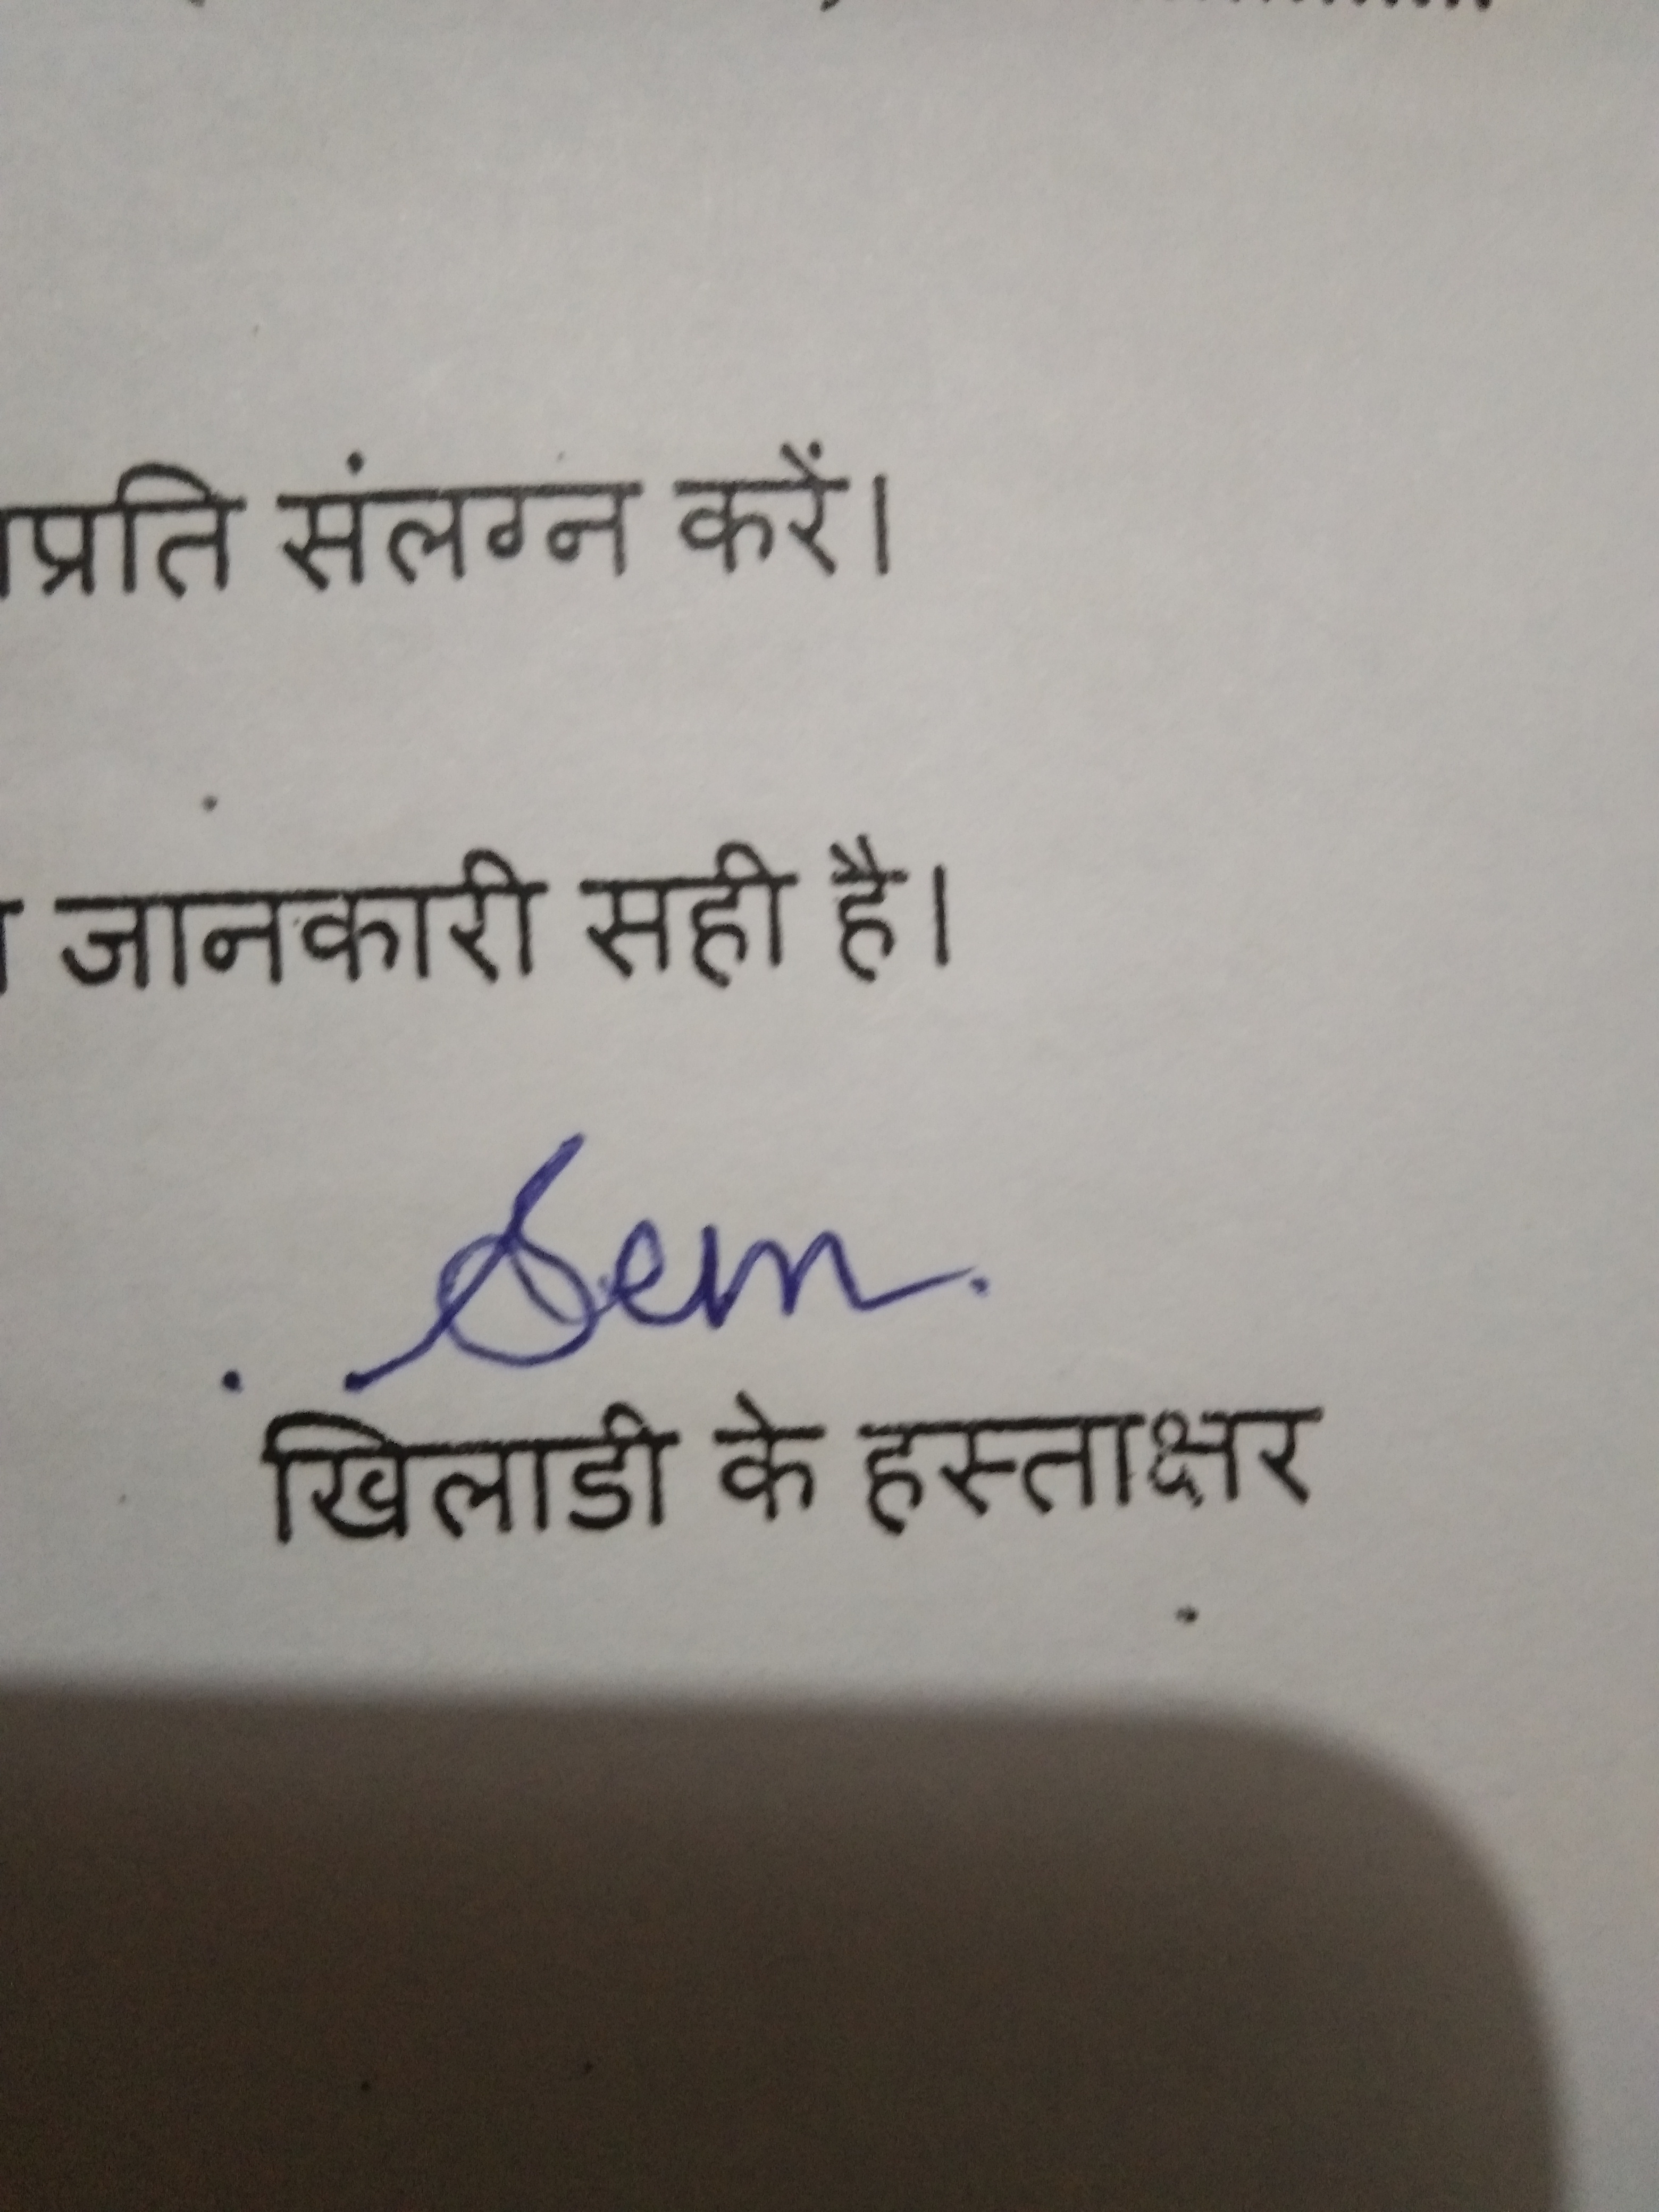 प्रति संलग्न करें।
जानकारी सही है।
खिलाडी के हस्ताक्षर